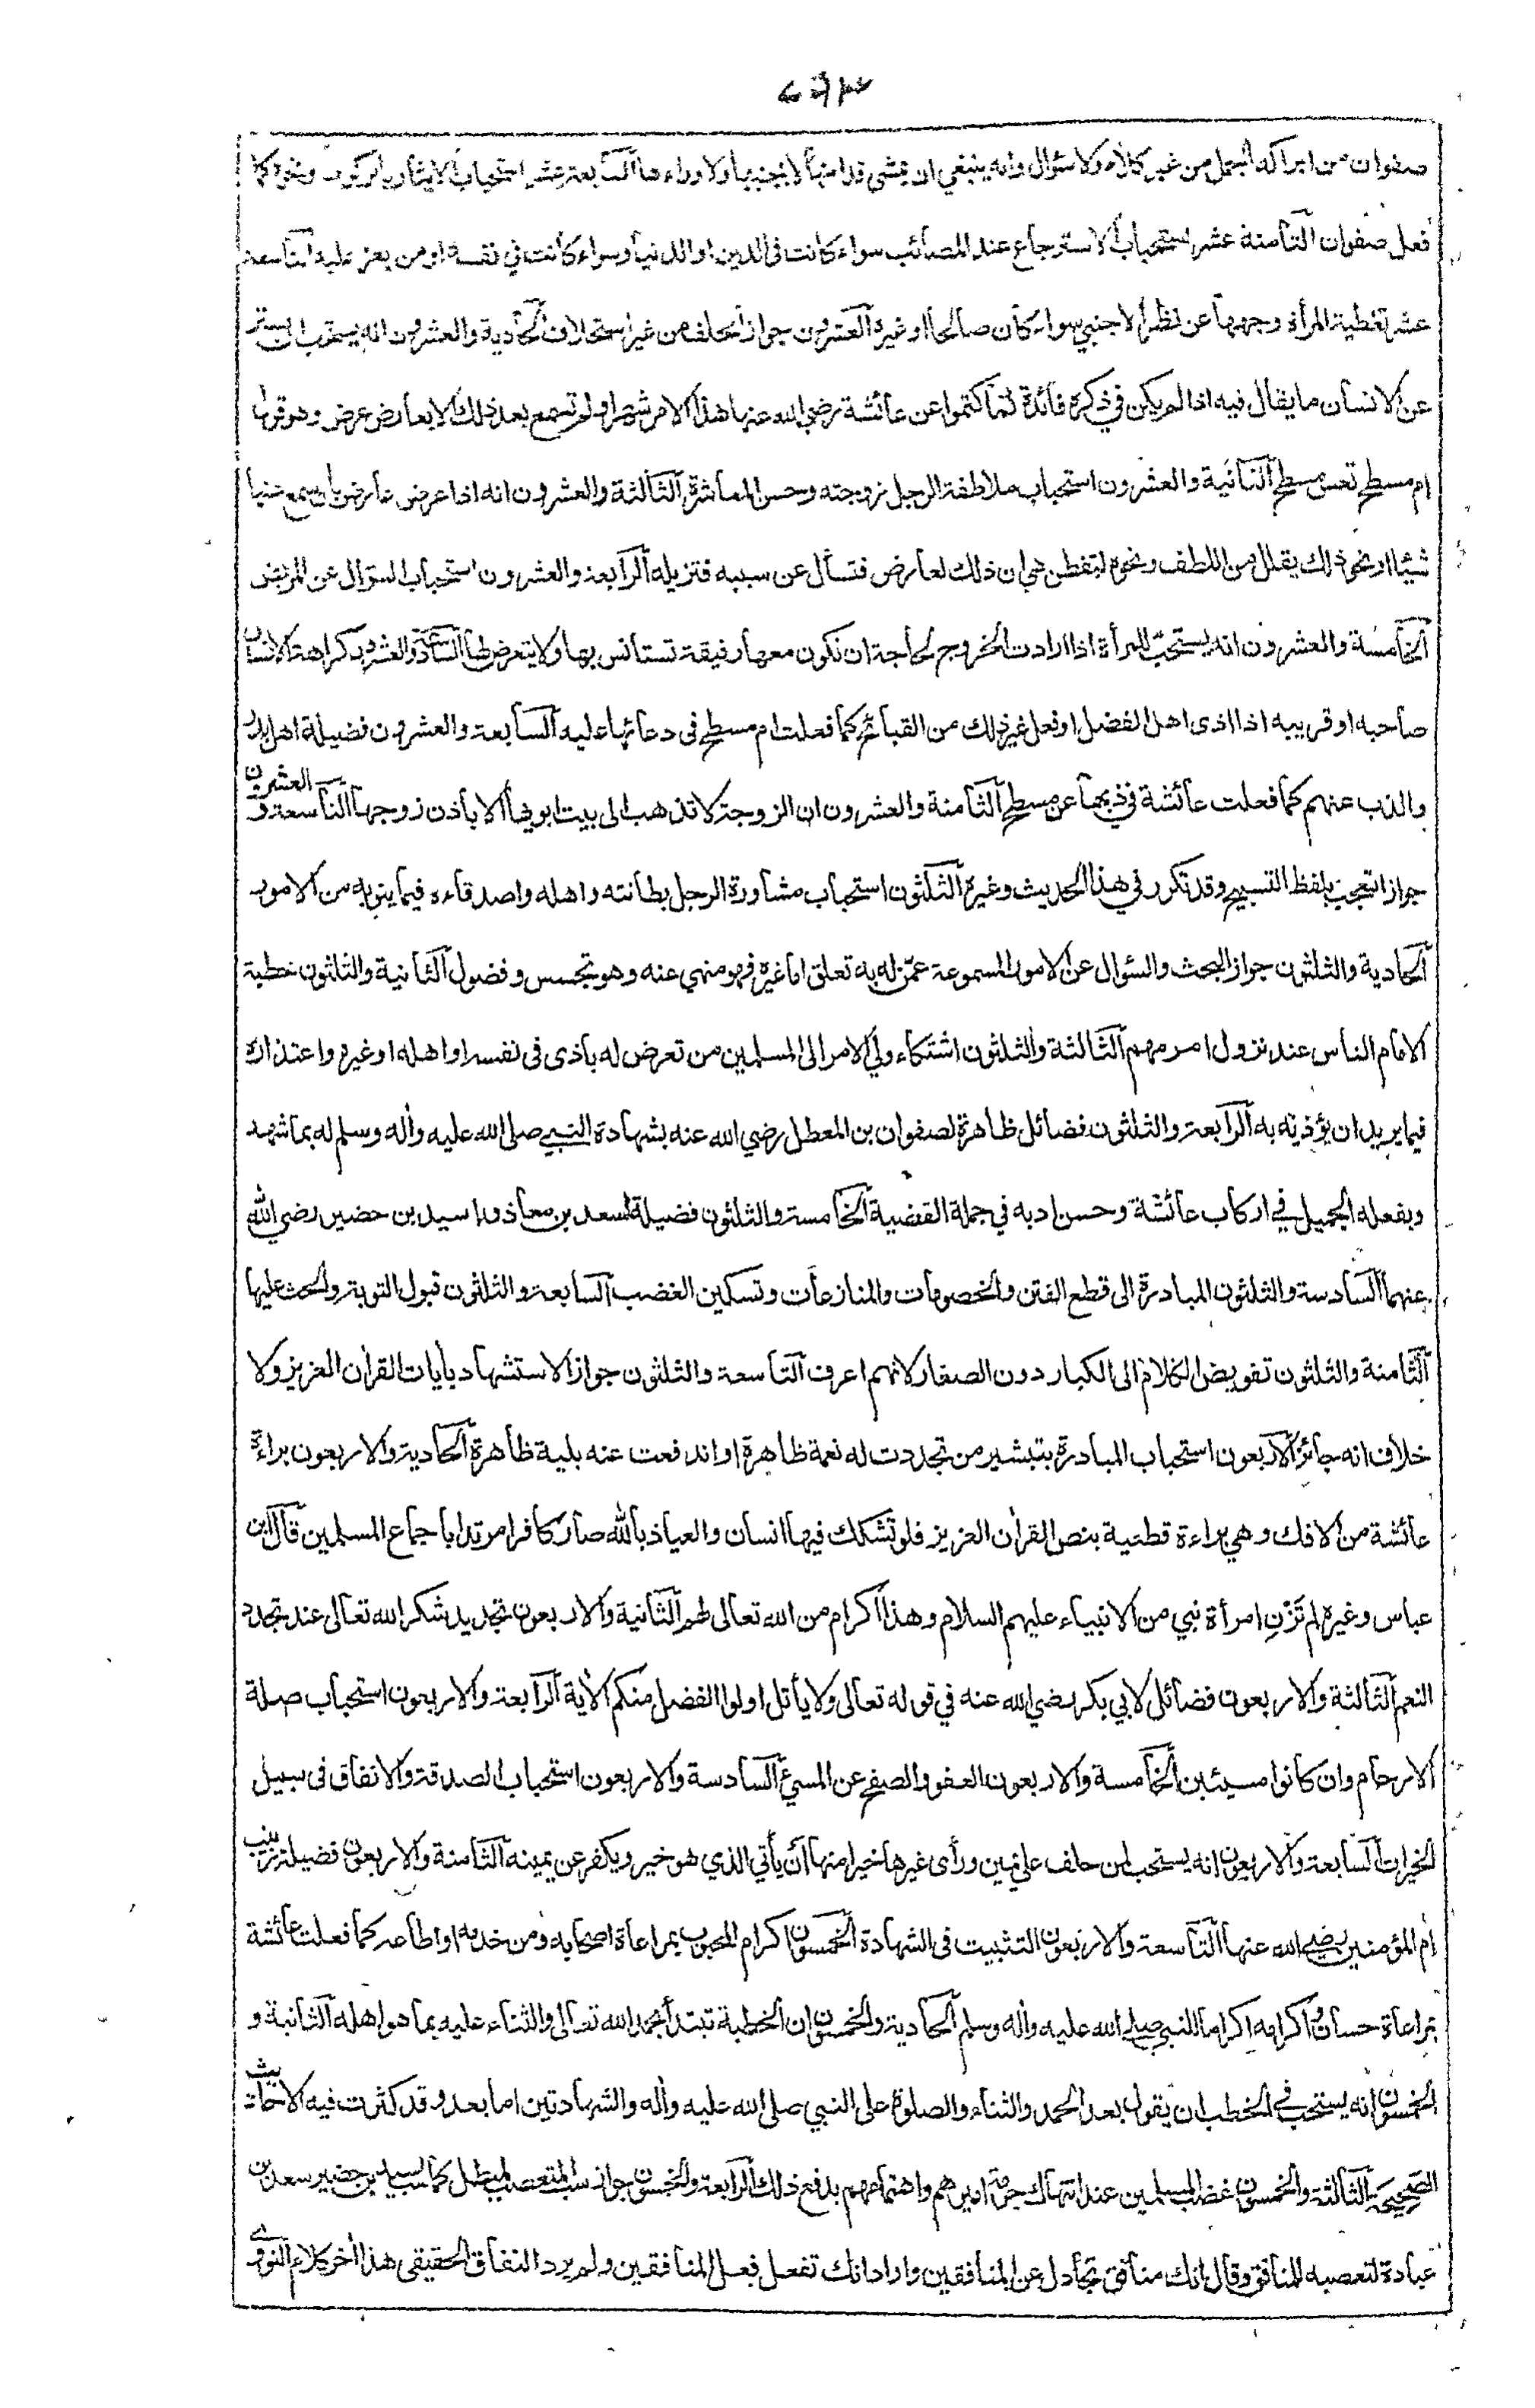 صفوان من ابراكه الجمل من غير كلام ولا سؤال وانه ينبغي ان يمشي قدامها لا بجنبها ولا وراءها السابعة عشر استحباب الايثار بالركوب ونحوه كما
فعل صفوان الثامنة عشر استحباب الاسترجاع عند المصائب سواء كانت في الدين او الدنيا وسواء كانت في نفسه او من يعز عليه التاسعة
عشر تغطية المرأة وجهها عن نظر الاجنبي سواء كان صالحا او غيره العشرون جواز الحلف من غير استحلاف الحادية والعشرون انه يستحب ان يستر
عن الانسان ما يقال فيه اذا لم يكن في ذكره فائدة كما كتموا عن عائشة رضي الله عنها هذا الامر شهرا ولم تسمع بعد ذلك الا بعارض عرض وهو قول
ام مسطح تعس مسطح الثانية والعشرون استحباب ملاطفة الرجل زوجته وحسن المعاشرة الثالثة والعشرون انه اذا عرض عارض بان سمع عنها
شيئا او نحو ذلك يقلل من اللطف ونحوه لتفطن هي ان ذلك لعارض فتسأل عن سببه فتزيله الرابعة والعشرون استحباب السؤال عن المريض
الخامسة والعشرون انه يستحب للمرأة اذا ارادت الخروج لحاجة ان تكون معها رفيقة تستانس بها ولا يتعرض لها السادسة والعشرون كراهة الانسان
صاحبه او قريبه اذا اذى اهل الفضل او فعل غير ذلك من القبائح كما فعلت ام مسطح في دعائها عليه السابعة والعشرون فضيلة اهل بدر
والذب عنهم كما فعلت عائشة في ذبها عن مسطح الثامنة والعشرون ان الزوجة لا تذهب الى بيت ابويها الا باذن زوجها التاسعة و العشرين
جواز التعجب بلفظ التسبيح وقد تكرر في هذا الحديث وغيره الثلثون استحباب مشاورة الرجل بطانته واهله واصدقاءه فيما ينوبه من الامور
الحادية والثلثون جواز البحث والسؤال عن الامور المسموعة عمن له به تعلق اما غيره فهو منهي عنه وهو تجسس وفضول الثانية والثلثون خطبة
الامام الناس عند نزول امر مهم الثالثة والثلثون اشتكاء ولي الامر الى المسلمين من تعرض له باذى في نفسه او اهله او غيره واعتذاره
فيما يريد ان يؤذيه به الرابعة والثلثون فضائل ظاهرة لصفوان بن المعطل رضي الله عنه بشهادة النبي صلى الله عليه واله وسلم له بما شهد
وبفعله الجميل في اركاب عائشة وحسن ادبه في جملة القضية الخامسة والثلثون فضيلة لسعد بن معاذ و اسيد بن حضير رضي الله
عنهما السادسة والثلثون المبادرة الى قطع الفتن والخصومات والمنازعات وتسكين الغضب السابعة والثلثون قبول التوبة والحث عليها
الثامنة والثلثون تفويض الكلام الى الكبار دون الصغار لانهم اعرف التاسعة والثلثون جواز الاستشهاد بايات القران العزيز ولا
خلاف انه جائز الاربعون استحباب المبادرة بتبشير من تجددت له نعمة ظاهرة او اندفعت عنه بلية ظاهرة الحادية والاربعون براءة
عائشة من الافك وهي براءة قطعية بنص القران العزيز فلو تشكك فيها انسان والعياذ بالله صار كافرا مرتدا باجماع المسلمين قال ابن
عباس وغيره لم تَزْنِ امرأة نبي من الانبياء عليهم السلام وهذا اكرام من الله تعالى لهم الثانية والاربعون تجديد شكر الله تعالى عند تجدد
النعم الثالثة والاربعون فضائل لابي بكر رضي الله عنه في قوله تعالى ولا يأتل اولوا الفضل منكم الاية الرابعة والاربعون استحباب صلة
الارحام وان كانوا مسيئين الخامسة والاربعون العفو والصفح عن المسيء السادسة والاربعون استحباب الصدقة والانفاق في سبيل
الخيرات السابعة والاربعون انه يستحب لمن حلف على يمين ورأى غيرها خيرا منها ان يأتي الذي هو خير ويكفر عن يمينه الثامنة والاربعون فضيلة زينب
ام المؤمنين رضي الله عنها التاسعة والاربعون التثبيت في الشهادة الخمسون اكرام المحبوب بمراعاة اصحابه ومن خدمه او اطاعه كما فعلت عائشة
بمراعاة حسان واكرامه اكراما للنبي صلى الله عليه واله وسلم الحادية والخمسون ان الخطبة تبتدأ بحمد الله تعالى والثناء عليه بما هو اهله الثانية و
الخمسون انه يستحب في الخطب ان يقول بعد الحمد والثناء والصلوة على النبي صلى الله عليه واله والشهادتين اما بعد وقد كثرت فيه الاحاديث
الصحيحة الثالثة والخمسون غضب المسلمين عند انتهاك حرمة اميرهم واهتمامهم بدفع ذلك الرابعة والخمسون جواز سب المتعصب لمبطل كما سب اسيد بن حضير سعد بن
عبادة لتعصبه للمنافق وقال انك منافق تجادل عن المنافقين واراد انك تفعل فعل المنافقين ولم يرد النفاق الحقيقي هذا اخر كلام النووي